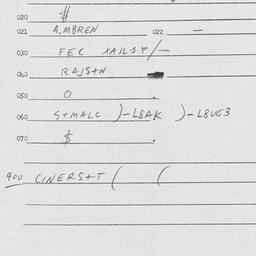 020 #
021 A.M8REN 022 —
030 FEC XAJLS4/—
040 RAJS+N
050 O .
060 S+MALC )-L8AK. )-L8UG3
070 $ .
900 CINERS+T ( (